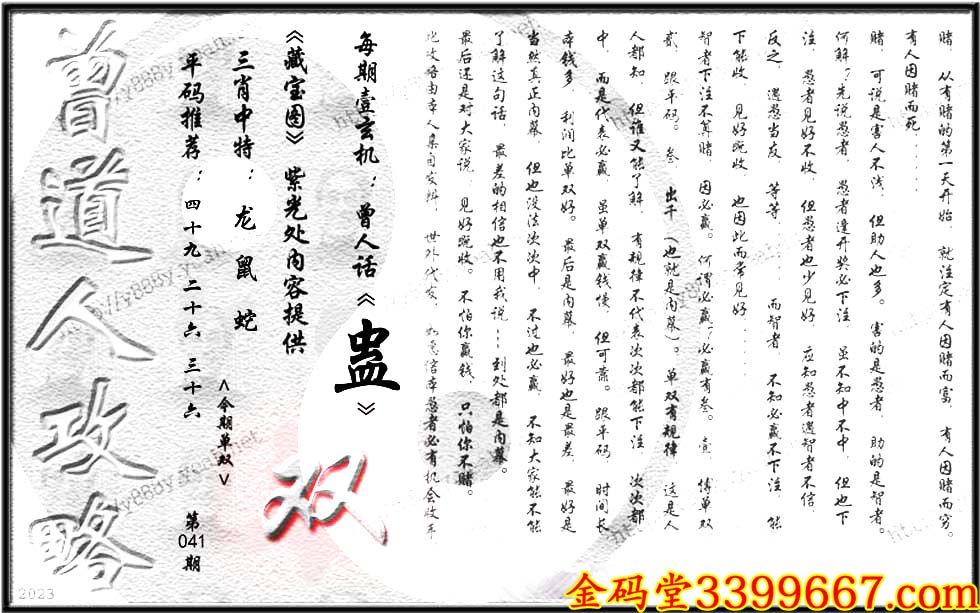 赌．从有赌的第一天开始．就注定有人因赌而富．有人因赌而穷。
有人因赌而死……
赌．可说是害人不浅．但助人也多。害的是愚者．助的是智者。
何解?先说愚者．愚者逢开奖必下注．虽不知中不中．但也下
注．愚者见好不收．但愚者也少见好．应知愚者遇智者不信．
反之．遇愚当友．等等……而智者．不知必赢不下注．能
下能收．见好既收．也因此而常见好……
智者下注不算赌．因必赢。何谓必赢?必赢有叁。壹．博单双
贰．跟平码。叁．出千（也就是内幕）。单双有规律．这是人
人都知．但谁又能了解．有规律不代表次次都能下注．次次都
中．而是代表必赢．虽单双赢钱慢．但可靠。跟平码．时间长
本钱多．利润比单双好。最后是内幕．最好也是最差．最好是
当然真正内幕．但也没法次次中．不过也必赢．不知大家能不能
了解这句话．最差的相信也不用我说…到处都是内幕。
最后还是对大家说．见好既收。不怕你赢钱．只怕你不赌。
此攻略由本人集自发辑．世外代发．如意信本愚者必有机会收年
每期壹玄机：曾人话《蛊》
《藏宝图》紫光处内容提供
三肖中特：龙 鼠 蛇
<今期单双>
双
平码推荐：四十九 二十六 三十六
第041期
曾道人攻略
2023
金码堂3399667.com